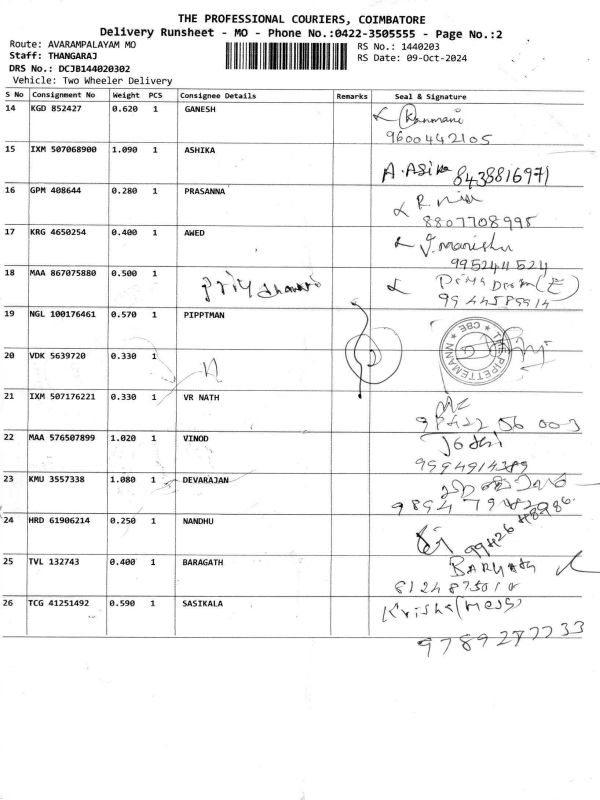 THE PROFESSIONAL COURIERS, COIMBATORE
Delivery Runsheet - MO - Phone No.:0422-3505555 - Page No.:2
Route: AVARAMPALAYAM MO
RS No.: 1440203
Staff: THANGARAJ
RS Date: 09-Oct-2024
DRS No.: DCJB144020302
Vehicle: Two Wheeler Delivery
S No Consignment No Weight PCS Consignee Details Remarks Seal & Signature
14 KGD 852427 0.620 1 GANESH
Kanmani
9600442105
15 IXM 507068900 1.090 1 ASHIKA
A. Asika 8438816971
16 GPM 408644 0.280 1 PRASANNA
8807708995
17 KRG 4650254 0.400 1 AWED
18 MAA 867075880 0.500 1
9944589914
19 NGL 100176461 0.570 1 PIPPTMAN
CBE
20 VDK 5639720 0.330 1
21 IXM 507176221 0.330 1 VR NATH
98422 56 003
22 MAA 576507899 1.020 1 VINOD
9994914389
23 KMU 3557338 1.080 1 DEVARAJAN
24 HRD 61906214 0.250 1 NANDHU
25 TVL 132743 0.400 1 BARAGATH
26 TCG 41251492 0.590 1 SASIKALA
9789277733